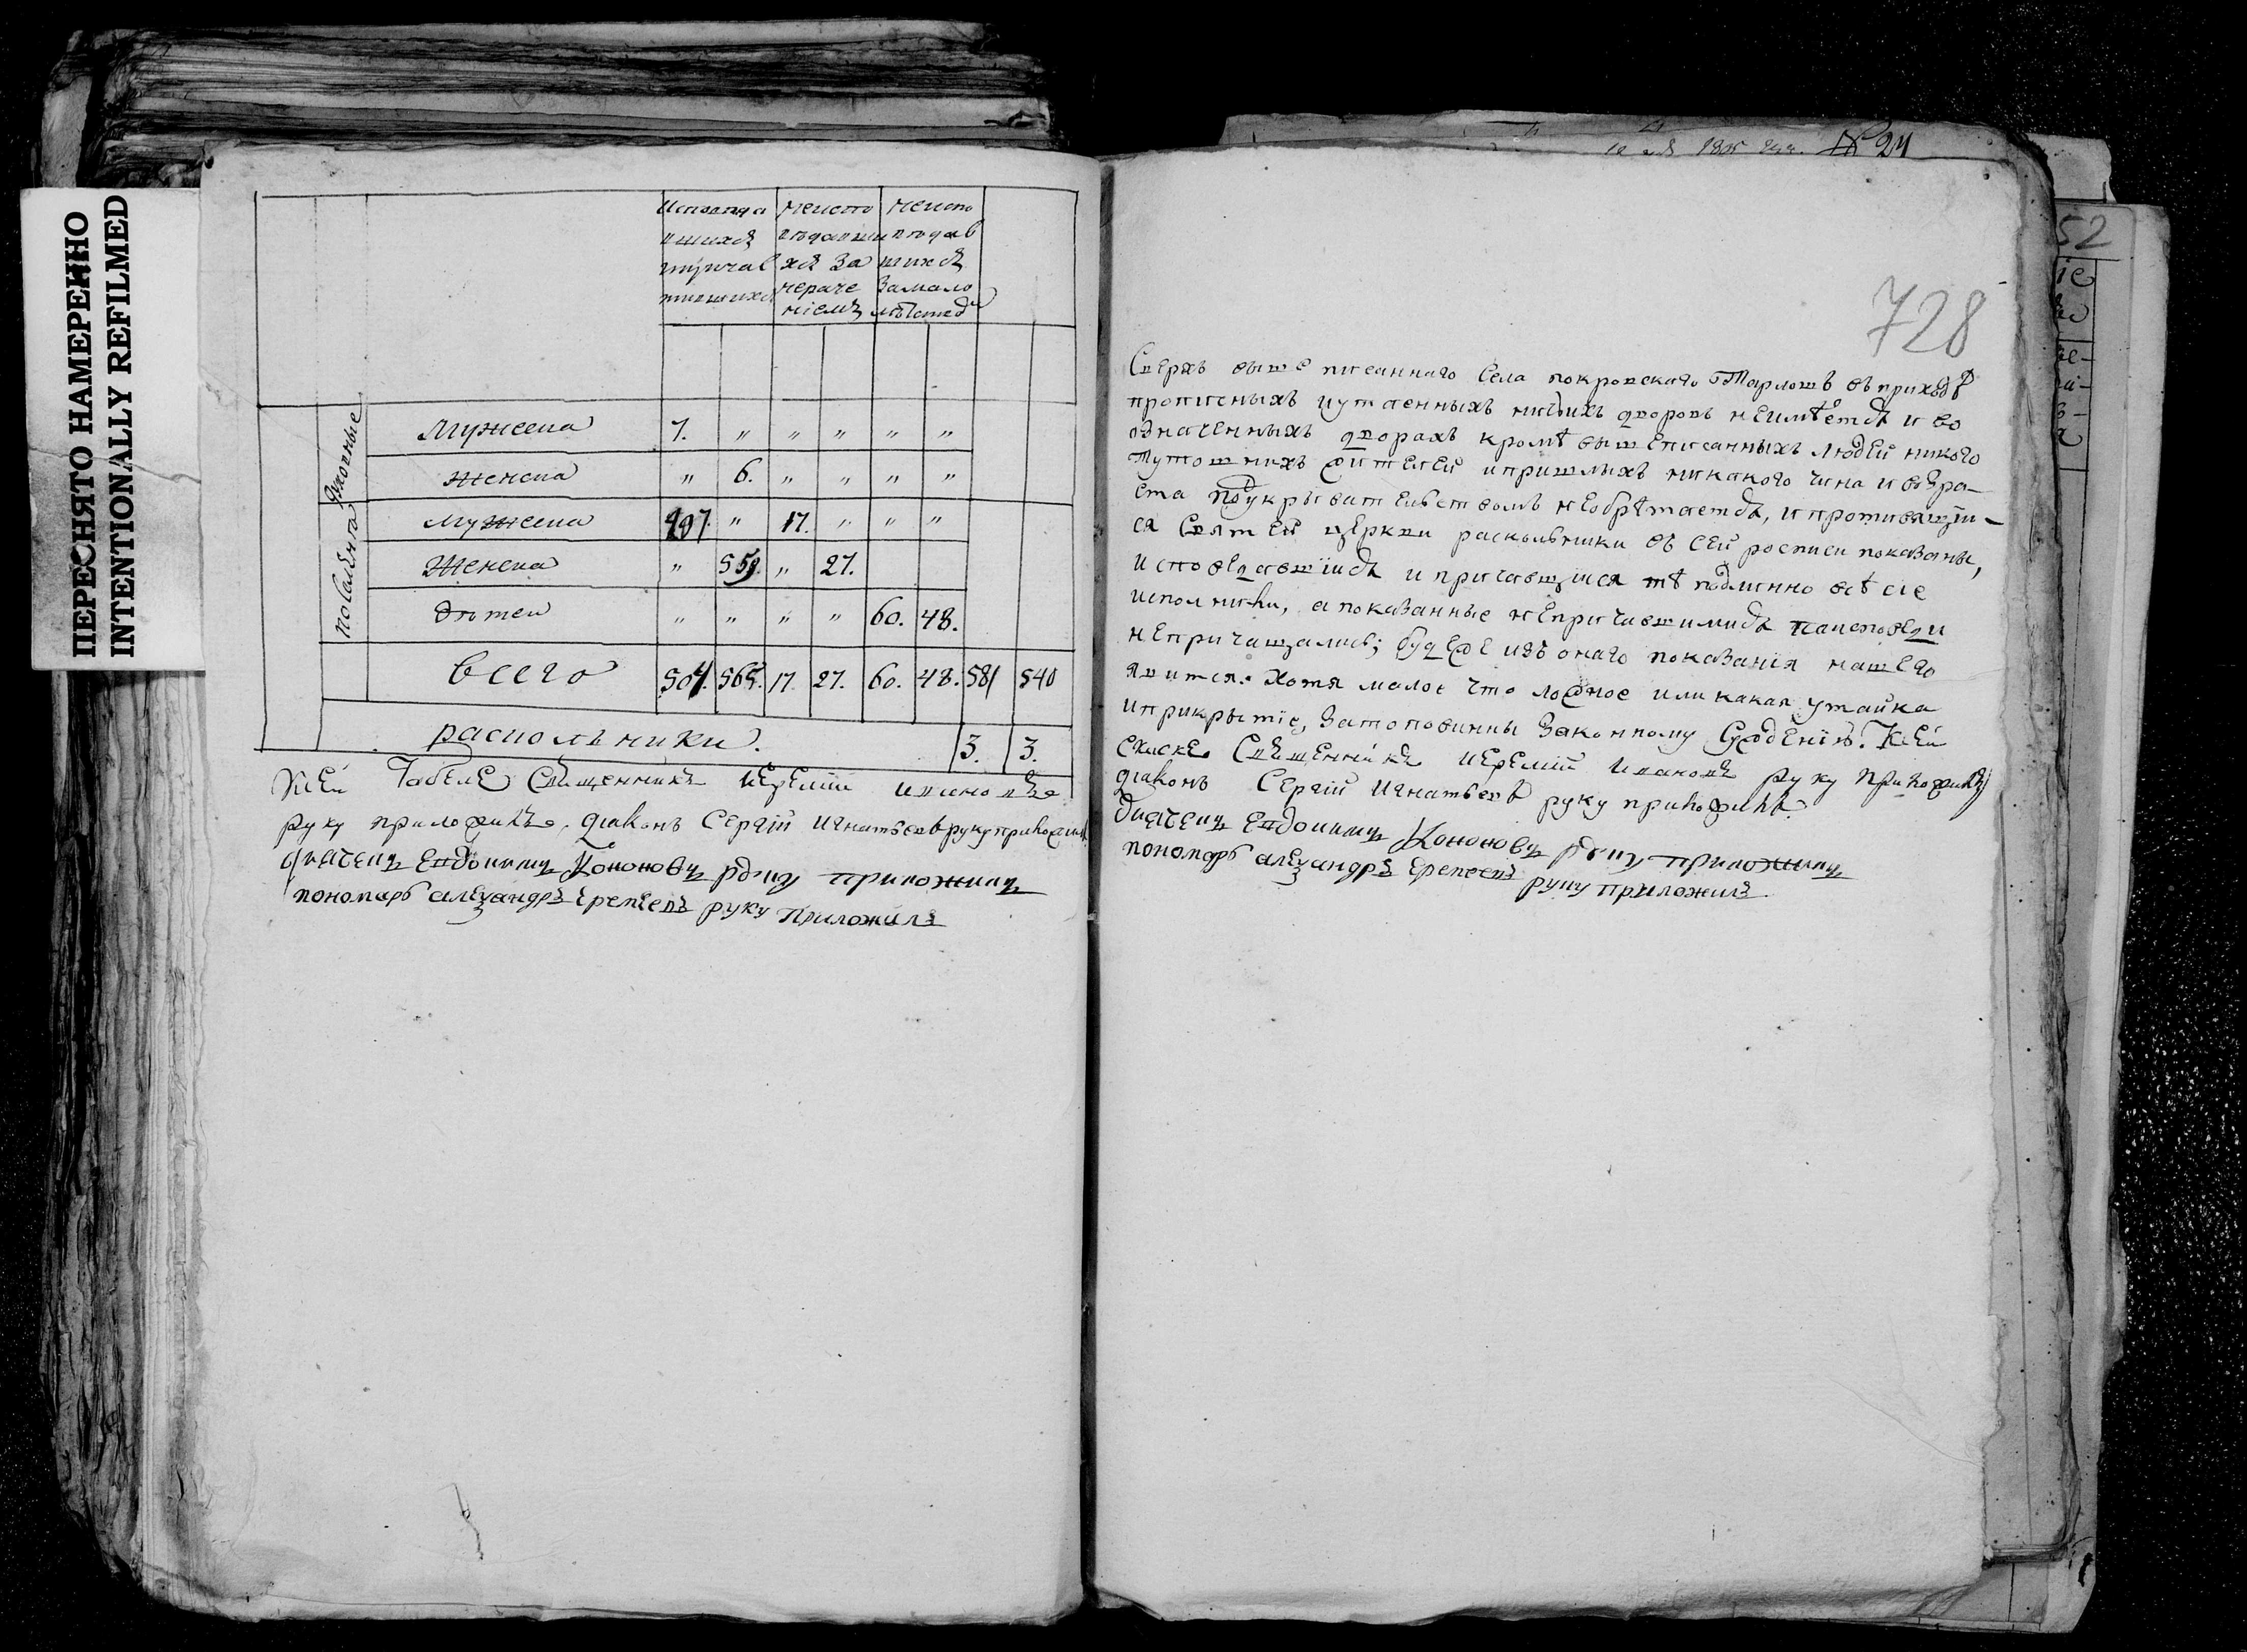 ПЕРЕСНЯТО НАМЕРЕННО
INTENTIONALLY REFILMED
Исповѣда неиспо неиспо
вшихся вѣдавши вѣдав
ипричас хся за шихся
тившихся нераче замало
ніемъ лѣтствомъ
духовные
Мужеска 7. " " " " "
женска " 6. " " " "
поселяна
мужеска 497. " 17. " " "
Женска " 559. " 27.
дѣтей " " " " 60. 48.
Всего 504. 565. 17. 27. 60. 48. 581 540
раскольники. 3. 3.
Ксей Табеле Священникъ Иеремій Ивановъ
руку приложилъ, діаконъ Сергій Игнатьевъ руку приложилъ
дьячецъ Евдокимъ Кононовъ руку приложилъ
пономарь алеѯандръ Ереме́евъ руку Приложилъ
1825 № 24
52
728
Сверхъ выше писаннаго Села покровскаго въ приходѣ
прописныхъ иутаенныхъ ничьихъ дворовъ неимѣется и во
означенныхъ дворахъ кромѣ вышеписанныхъ людей никого
тутошнихъ жителей ипришлыхъ никакого чина и возра-
ста подукрывательствомъ необрѣтается, и противящіи-
ся Святей церкви раскольники въ сей росписи показаны,
исповедавшіися и причавщіися тѣ подлинно всѣ сіе
исполнили, а показанные непричавшимися
непричащались; будеже изъ онаго показанія нашего
явится. Хотя малое что ложное или какая утайка
иприкрытіе, Затоповинны Законному Сужденію. Ксей
Священникъ Иеремій Ивановъ руку приложилъ
діаконъ Сергій Игнатьевъ руку приложилъ.
дьячецъ Евдокимъ Кононовъ руку приложилъ
пономарь алеѯандръ Еремеевъ руку приложилъ